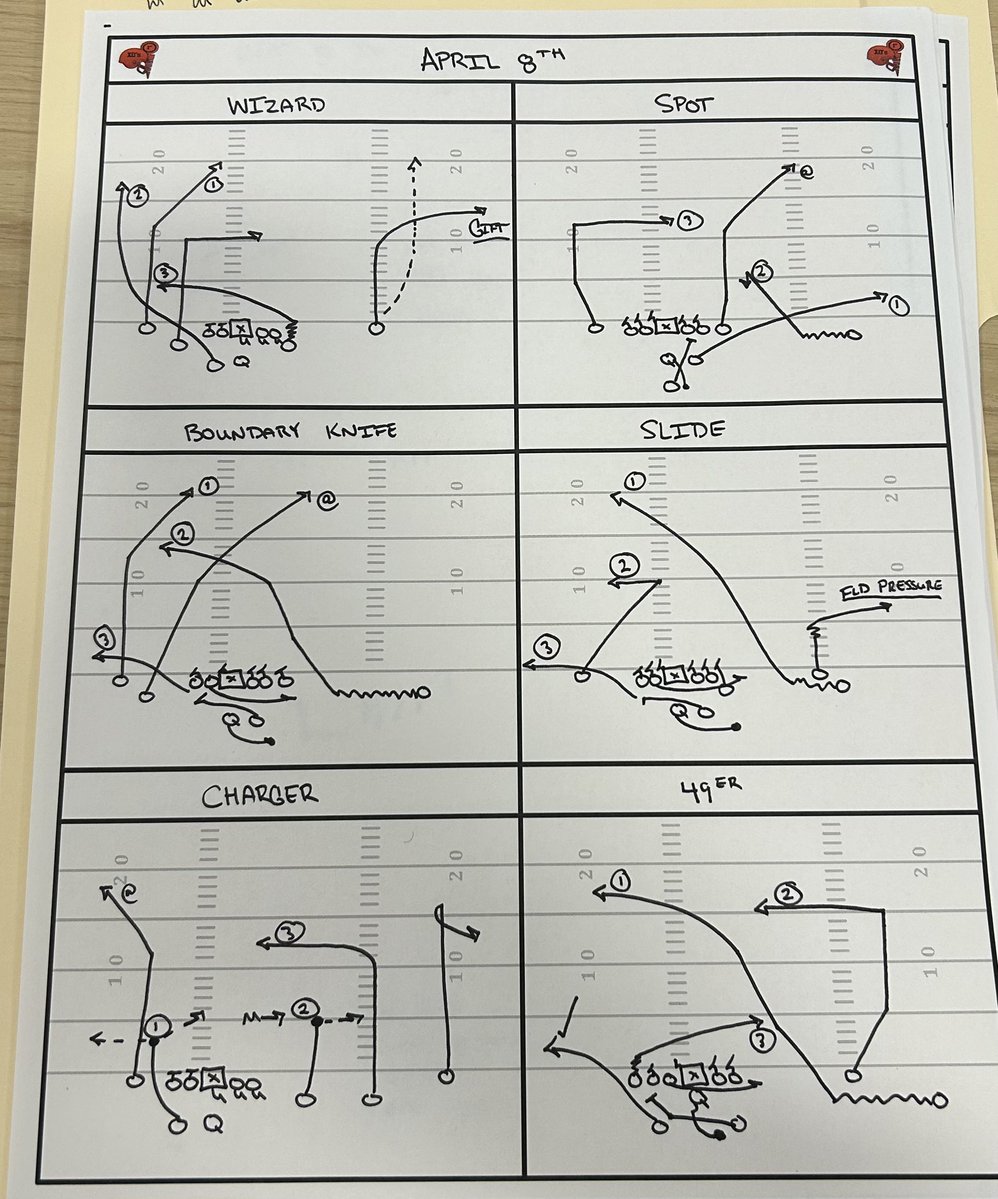 APRIL 8TH
WIZARD
SPOT
20
20
20
20
10
10
10
10
1
2
3
GIFT
X
Q
@
3
2
1
X
Q
BOUNDARY KNIFE
SLIDE
20
20
20
20
10
10
10
0
1
@
2
3
X
Q
1
2
FLD PRESSURE
3
X
Q
CHARGER
49ER
20
20
20
20
10
10
10
10
@
3
1
M
2
X
Q
1
2
3
X
Q